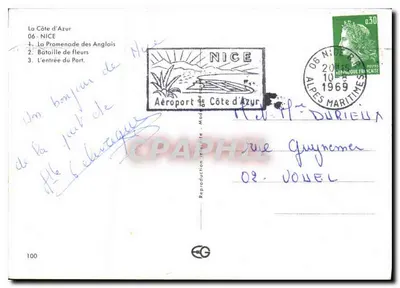 La Côte d'Azur
06 - NICE
1. La Promenade des Anglais
2. Bataille de fleurs
3. L'entrée du Port.
Un bonjour de Nice
de la part de
NICE
Aéroport de Côte d'Azur
06 NICE
10 -
1969
ALPES MARITIMES
0,30
REPUBLIQUE FRANÇAISE
CPARAMA
M. et Mme DURIEUX
rue Guynemer
02 - VOUEL
Reproduction
100
EG